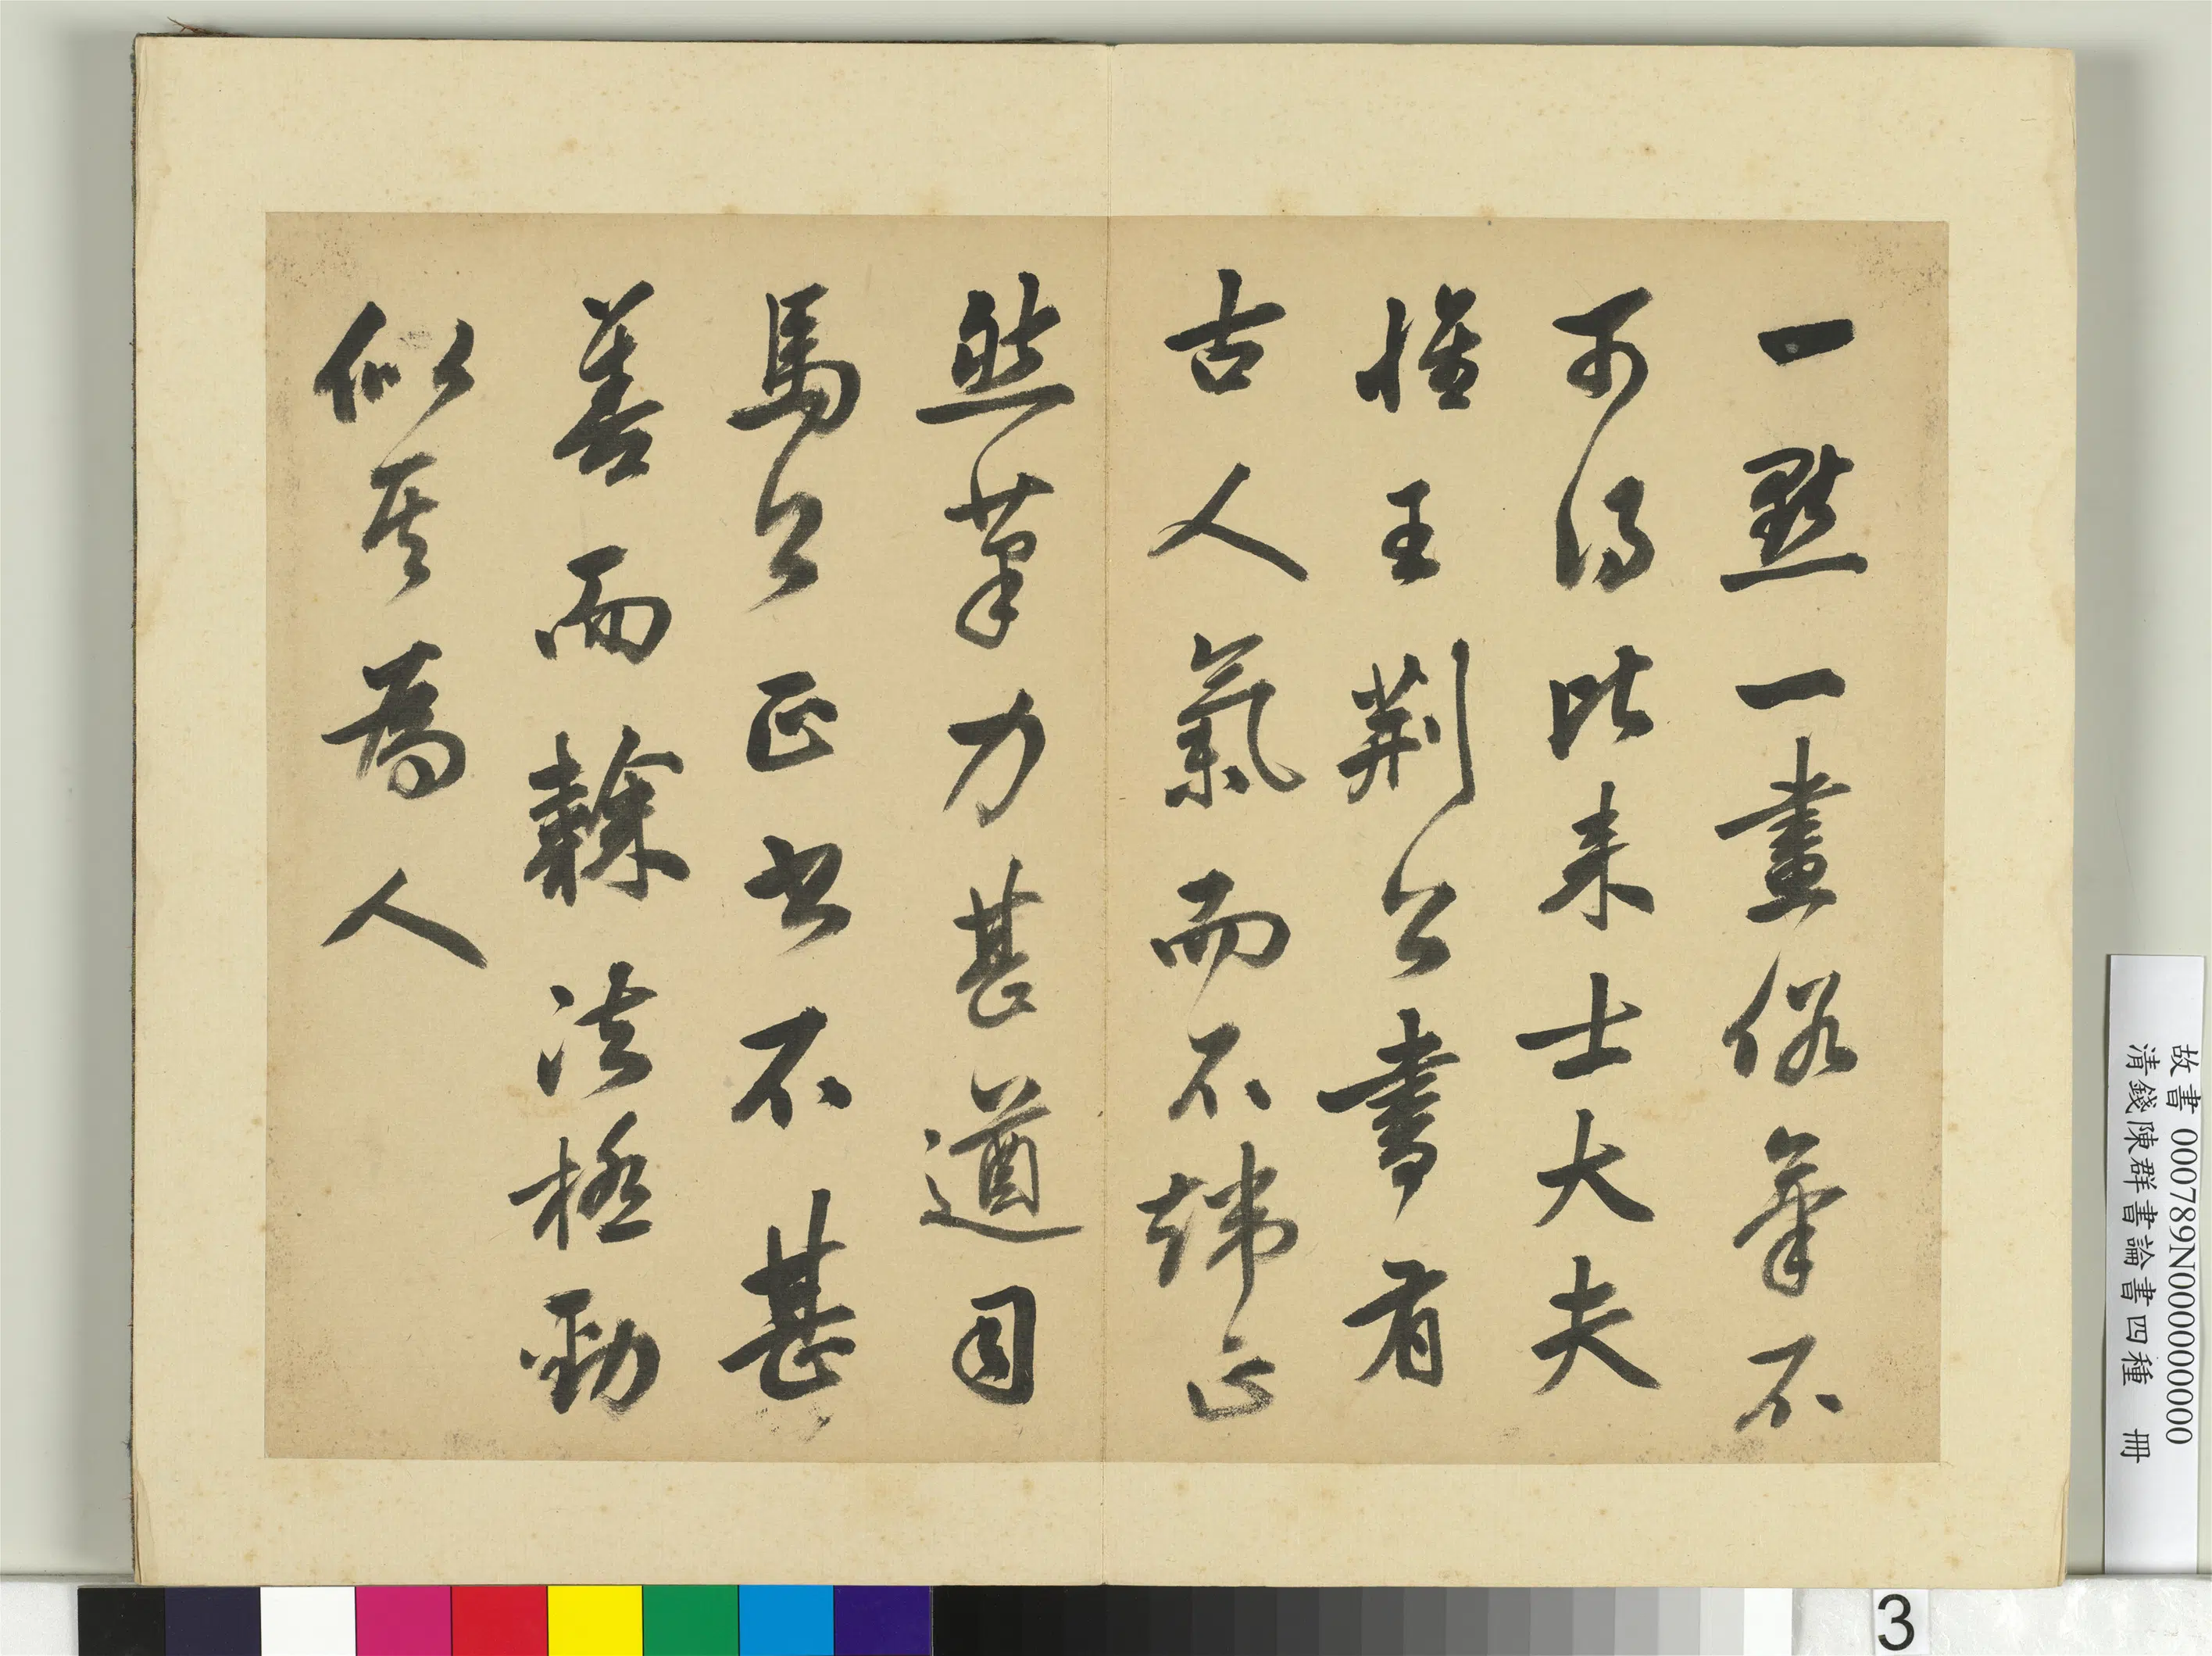 一點一畫俗筆不
可得比来士大夫
惟王荆公書有
古人氣而不端正
然筆力甚遒司
馬公正书不甚
善而隸法極勁
似其為人
故書 000789N000000000
清錢陳群書論書四種 冊
3